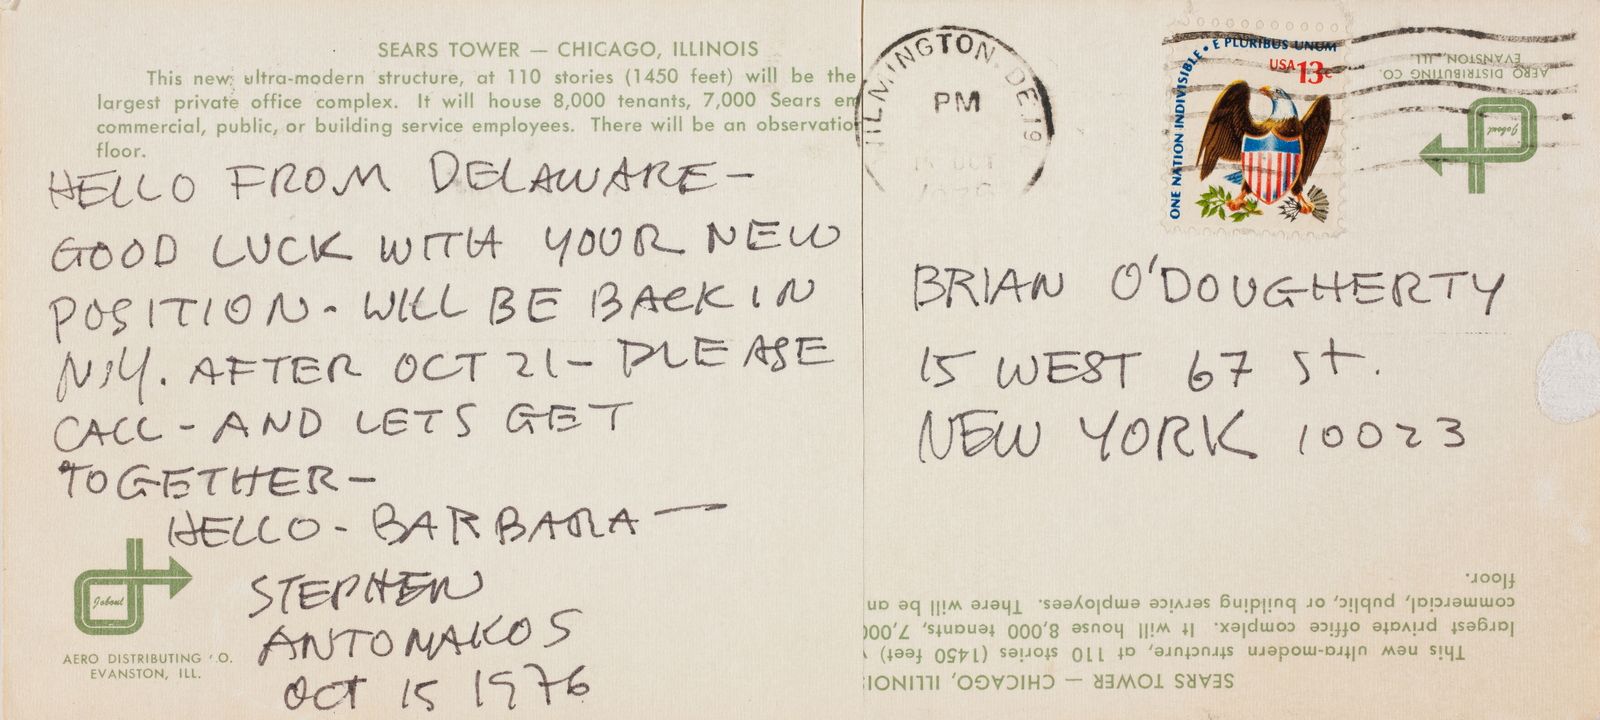 SEARS TOWER — CHICAGO, ILLINOIS
This new ultra-modern structure, at 110 stories (1450 feet) will be the
largest private office complex. It will house 8,000 tenants, 7,000 Sears em
commercial, public, or building service employees. There will be an observatio
floor.
HELLO FROM DELAWARE –
GOOD LUCK WITH YOUR NEW
POSITION. WILL BE BACK IN
N.Y. AFTER OCT 21 – PLEASE
CALL – AND LETS GET
TOGETHER –
HELLO – BARBARA —
STEPHEN
ANTONAKOS
OCT 15 1976
Jobout
AERO DISTRIBUTING CO.
EVANSTON, ILL.
WILMINGTON, DE. 19
PM
15 OCT
1976
ONE NATION INDIVISIBLE • E PLURIBUS UNUM
USA 13c
AERO DISTRIBUTING CO.
EVANSTON, ILL.
Jobout
BRIAN O'DOUGHERTY
15 WEST 67 St.
NEW YORK 10023
SEARS TOWER — CHICAGO, ILLINOI
This new ultra-modern structure, at 110 stories (1450 feet)
largest private office complex. It will house 8,000 tenants, 7,000
commercial, public, or building service employees. There will be an
floor.